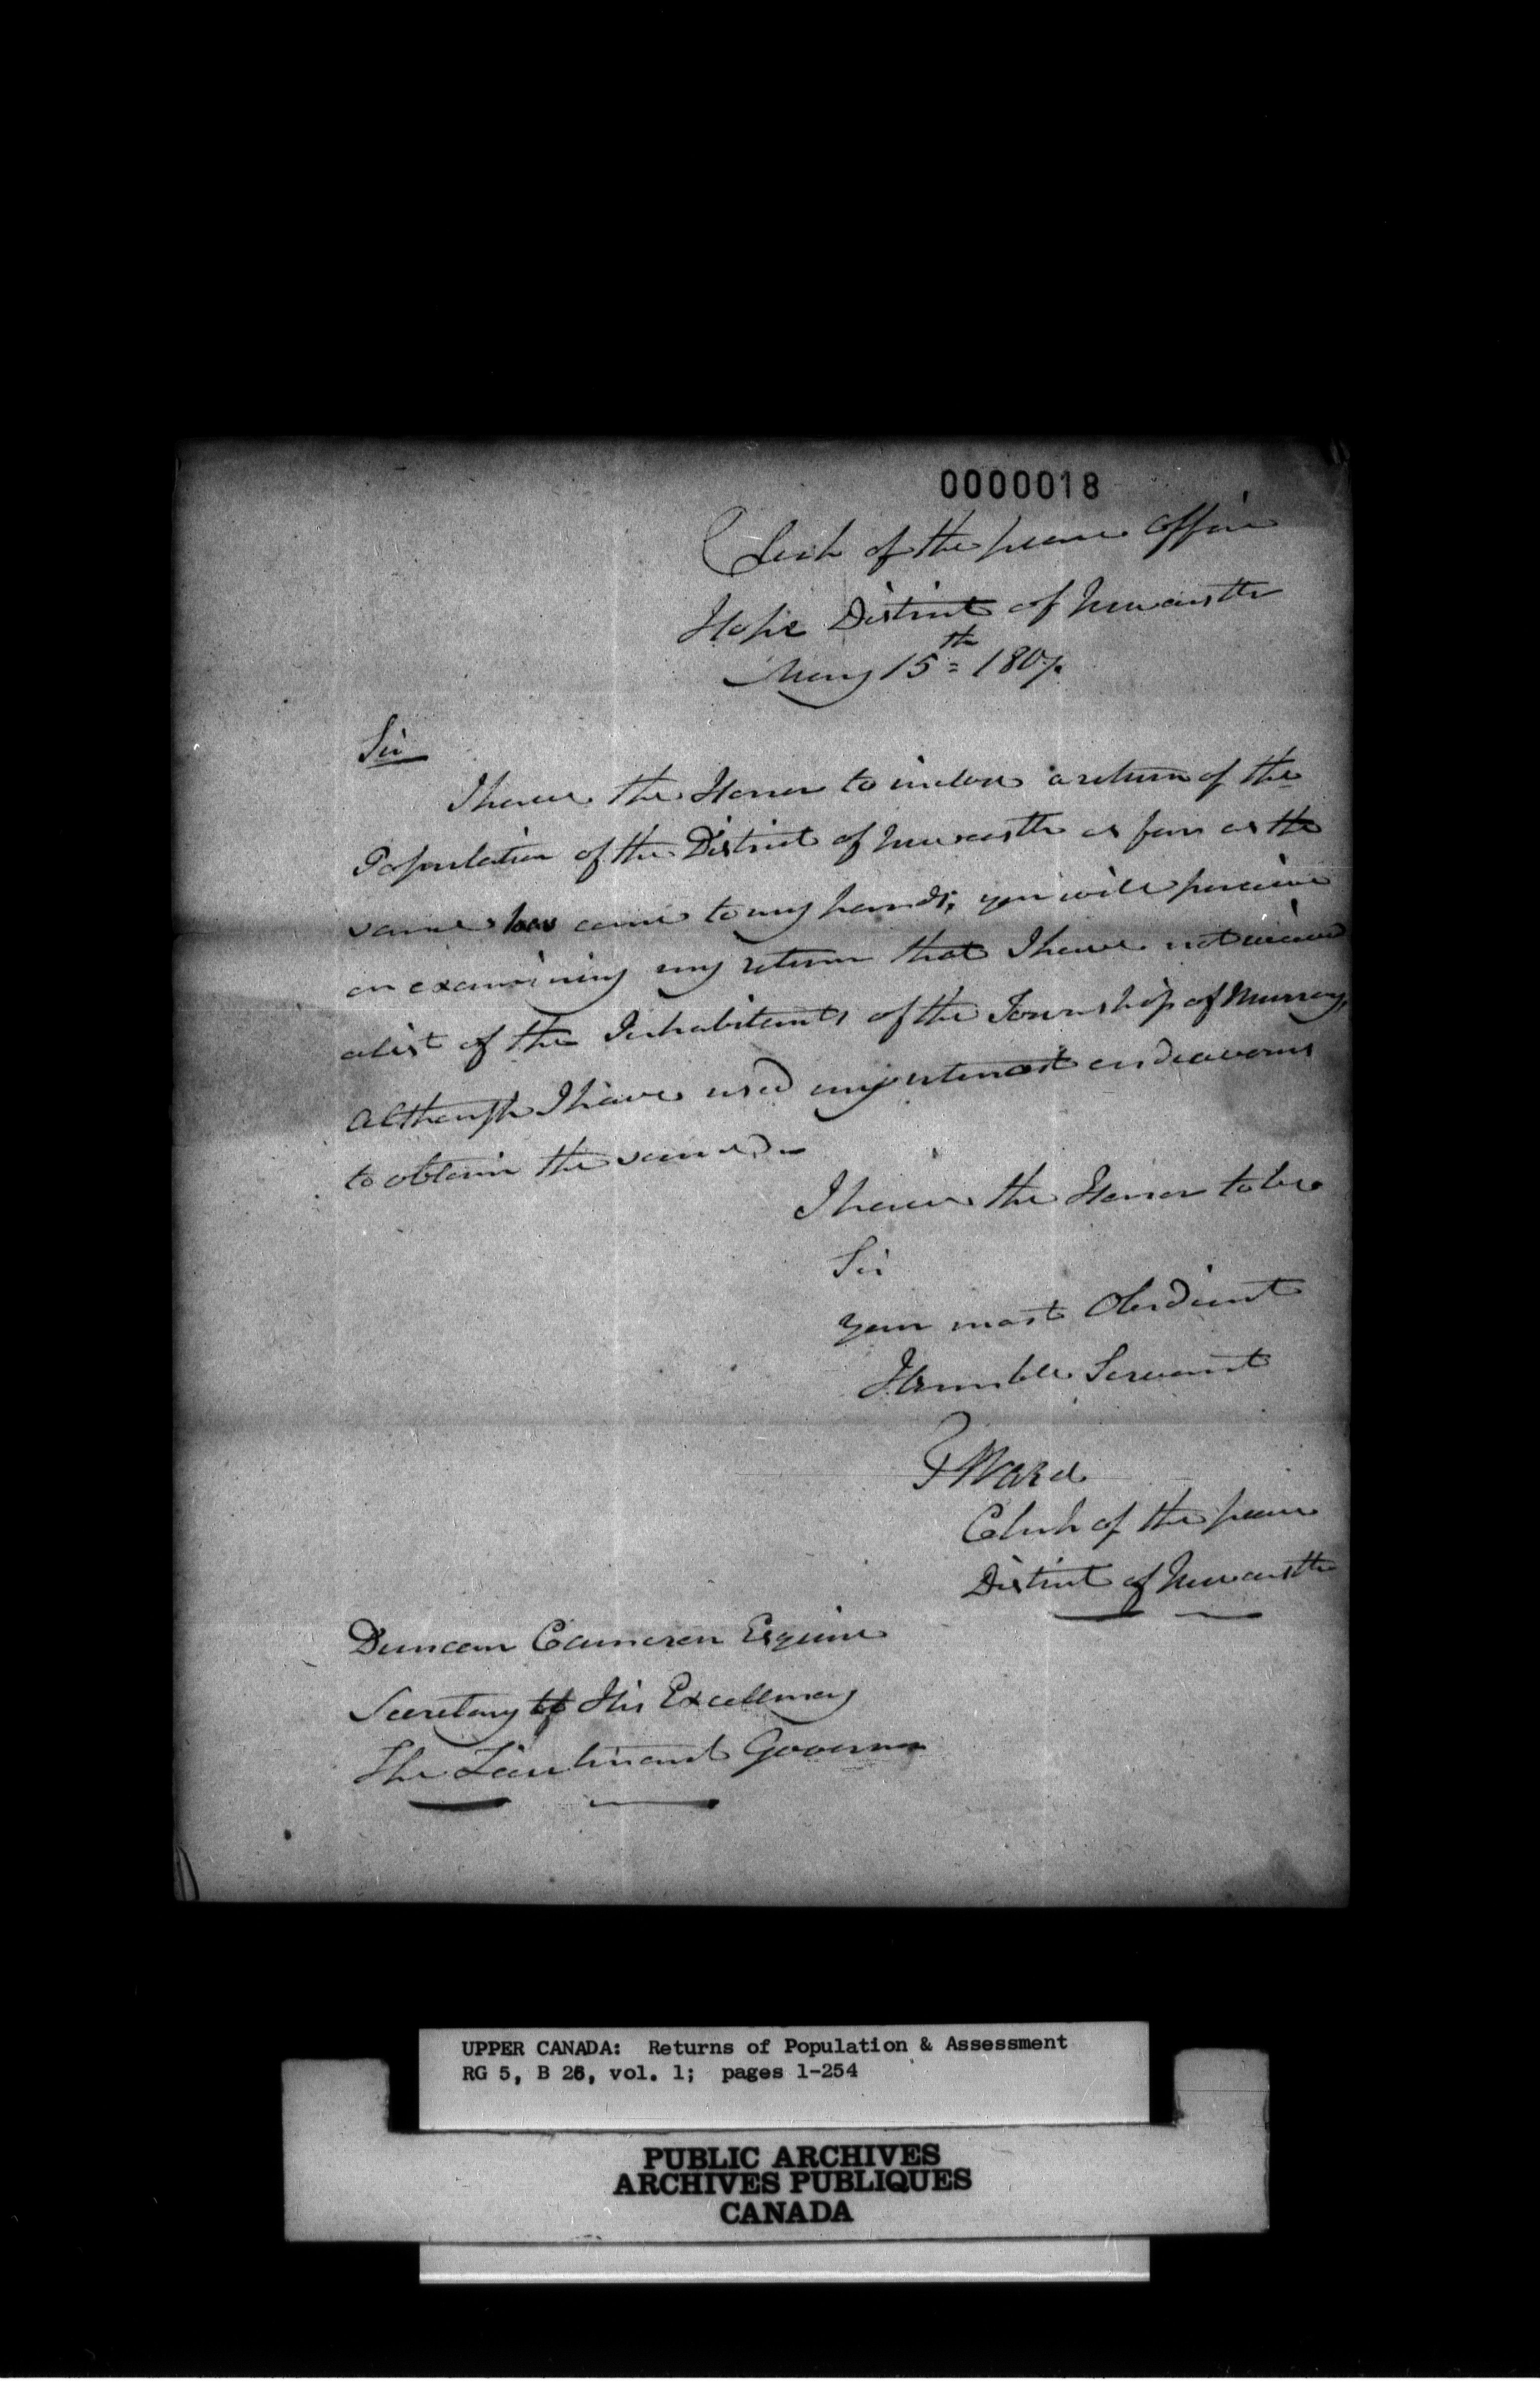 0000018
Clerk of the peace Office
Hope District of Newcastle
May 15th 1807.
Sir
I have the Honor to inclose a return of the
Population of the District of Newcastle as far as the
same has come to my hands; you will perceive
on examining my return that I have not received
a list of the Inhabitants of the Township of Murray,
although I have used my utmost endeavours
to obtain the same.
I have the Honor to be
Sir
your most Obedient
Humble Servant
T Ward
Clerk of the peace
District of Newcastle
Duncan Cameron Esquire
Secretary of His Excellency
The Lieutenant Governor
UPPER CANADA: Returns of Population & Assessment
RG 5, B 26, vol. 1; pages 1-254
PUBLIC ARCHIVES
ARCHIVES PUBLIQUES
CANADA